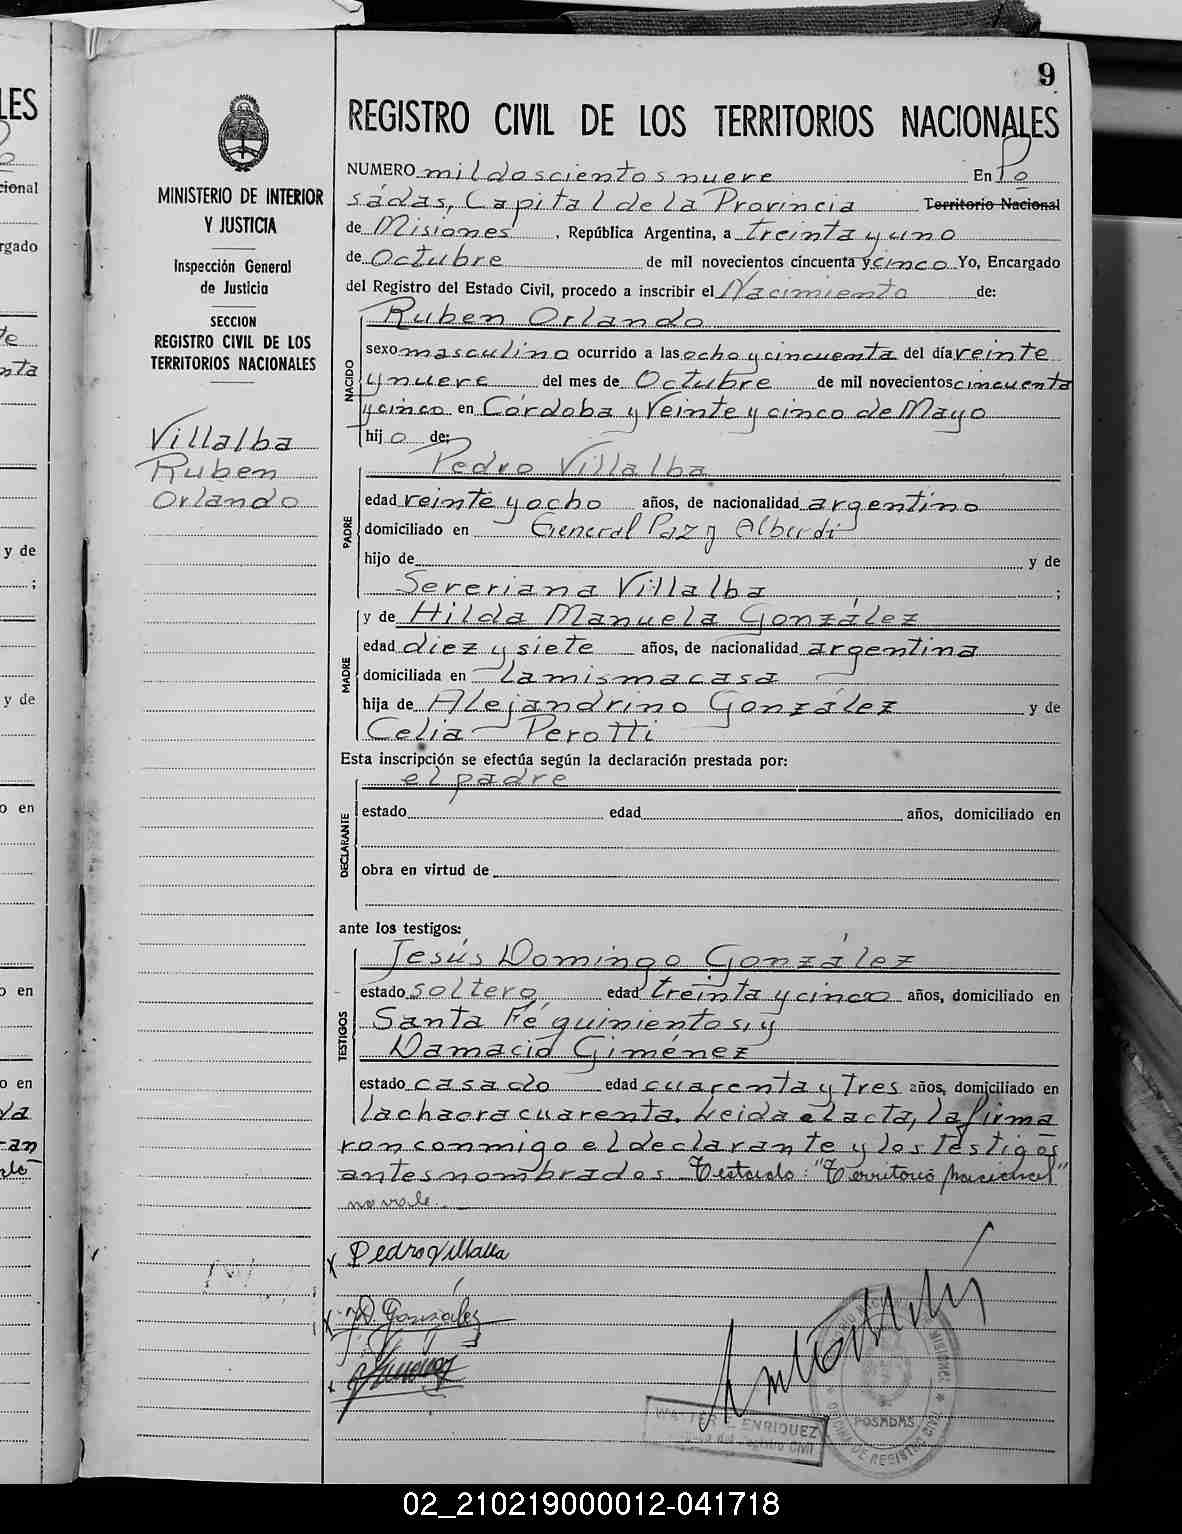 9
REGISTRO CIVIL DE LOS TERRITORIOS NACIONALES
MINISTERIO DE INTERIOR
Y JUSTICIA
Inspección General
de Justicia
SECCION
REGISTRO CIVIL DE LOS
TERRITORIOS NACIONALES
Villalba
Ruben
Orlando
NUMERO mil doscientos nueve En Po
sadas, Capital de la Provincia Territorio Nacional
de Misiones, República Argentina, a treinta y uno
de Octubre de mil novecientos cincuenta y cinco Yo, Encargado
del Registro del Estado Civil, procedo a inscribir el Nacimiento de:
NACIDO
Ruben Orlando
sexo masculino ocurrido a las ocho y cincuenta del día veinte
y nueve del mes de Octubre de mil novecientos cincuenta
y cinco en Córdoba y Veinte y cinco de Mayo
hijo de:
PADRE
Pedro Villalba
edad veinte y ocho años, de nacionalidad argentino
domiciliado en General Paz y Alberdi
hijo de y de
Severiana Villalba ;
MADRE
y de Hilda Manuela González
edad diez y siete años, de nacionalidad argentina
domiciliada en la misma casa
hija de Alejandrino González y de
Celia Perotti
Esta inscripción se efectúa según la declaración prestada por:
DECLARANTE
el padre
estado edad años, domiciliado en
obra en virtud de
ante los testigos:
TESTIGOS
Jesús Domingo González
estado soltero, edad treinta y cinco años, domiciliado en
Santa Fé quinientos, y
Damacio Giménez
estado casado edad cuarenta y tres años, domiciliado en
la chacra cuarenta. Leida el acta, la firma
ron conmigo el declarante y los testigos
antes nombrados. Testado: "Territorio Nacional"
no vale.
Pedro Villalba
J.D. González
Giménez
ENRIQUEZ
POSADAS
02_210219000012-041718